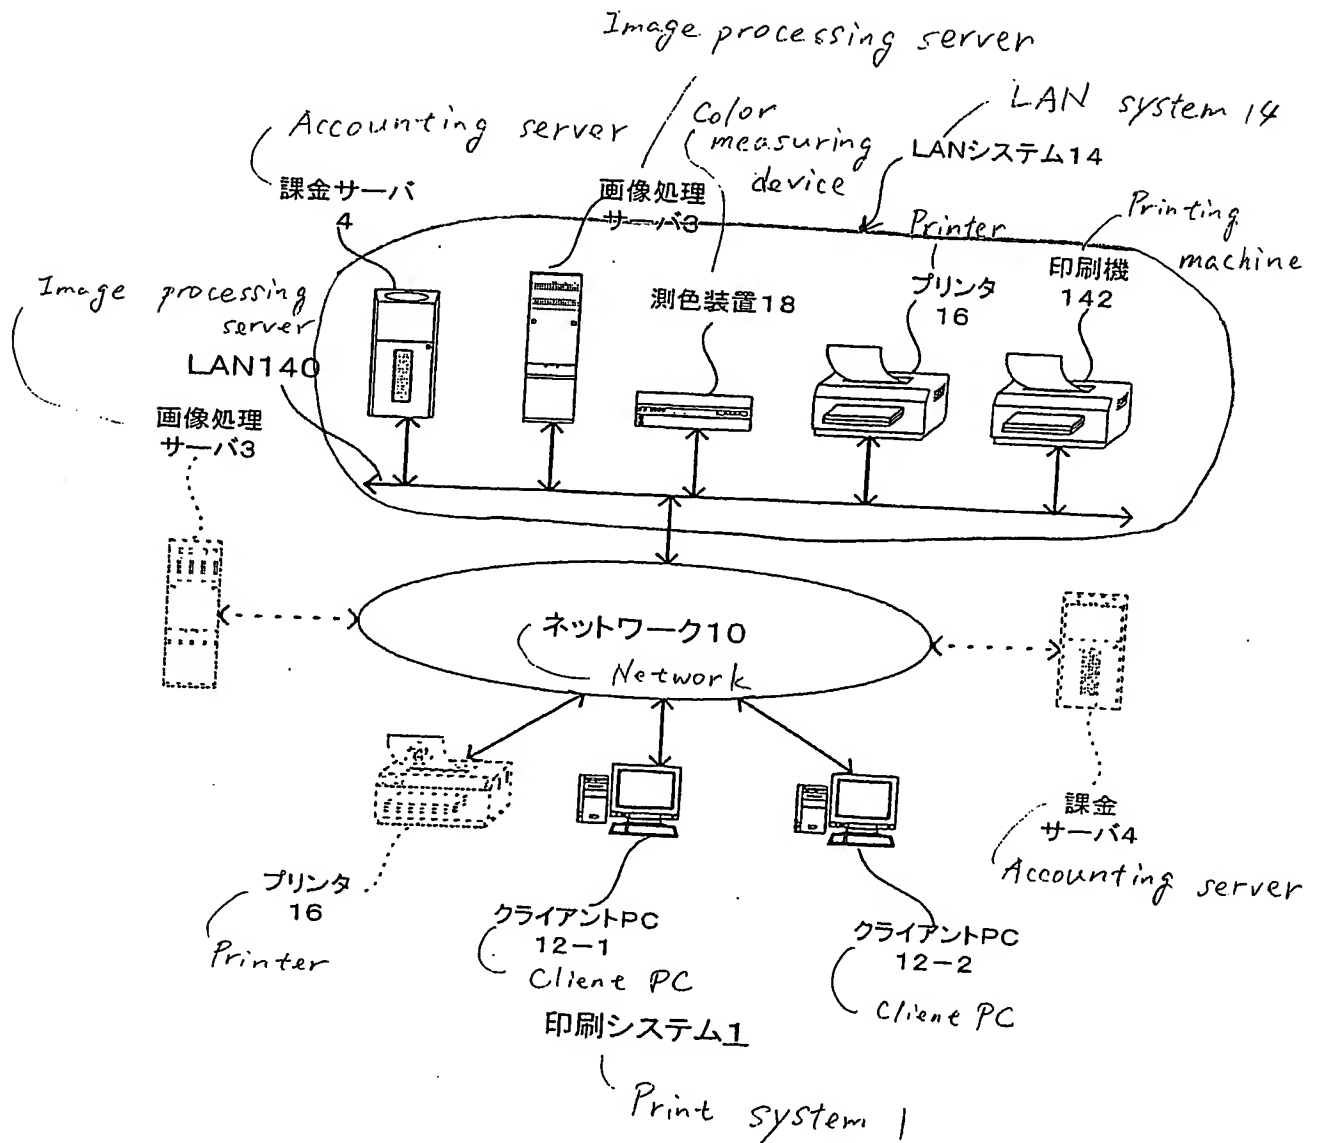 Image processing server
Accounting server
Color
measuring
device
LAN system 14
LANシステム14
課金サーバ
4
画像処理
サーバ3
Printer
プリンタ
16
Printing
machine
印刷機
142
測色装置18
Image processing
server
LAN140
画像処理
サーバ3
ネットワーク10
Network
課金
サーバ4
Accounting server
プリンタ
16
Printer
クライアントPC
12-1
Client PC
クライアントPC
12-2
Client PC
印刷システム1
Print system 1